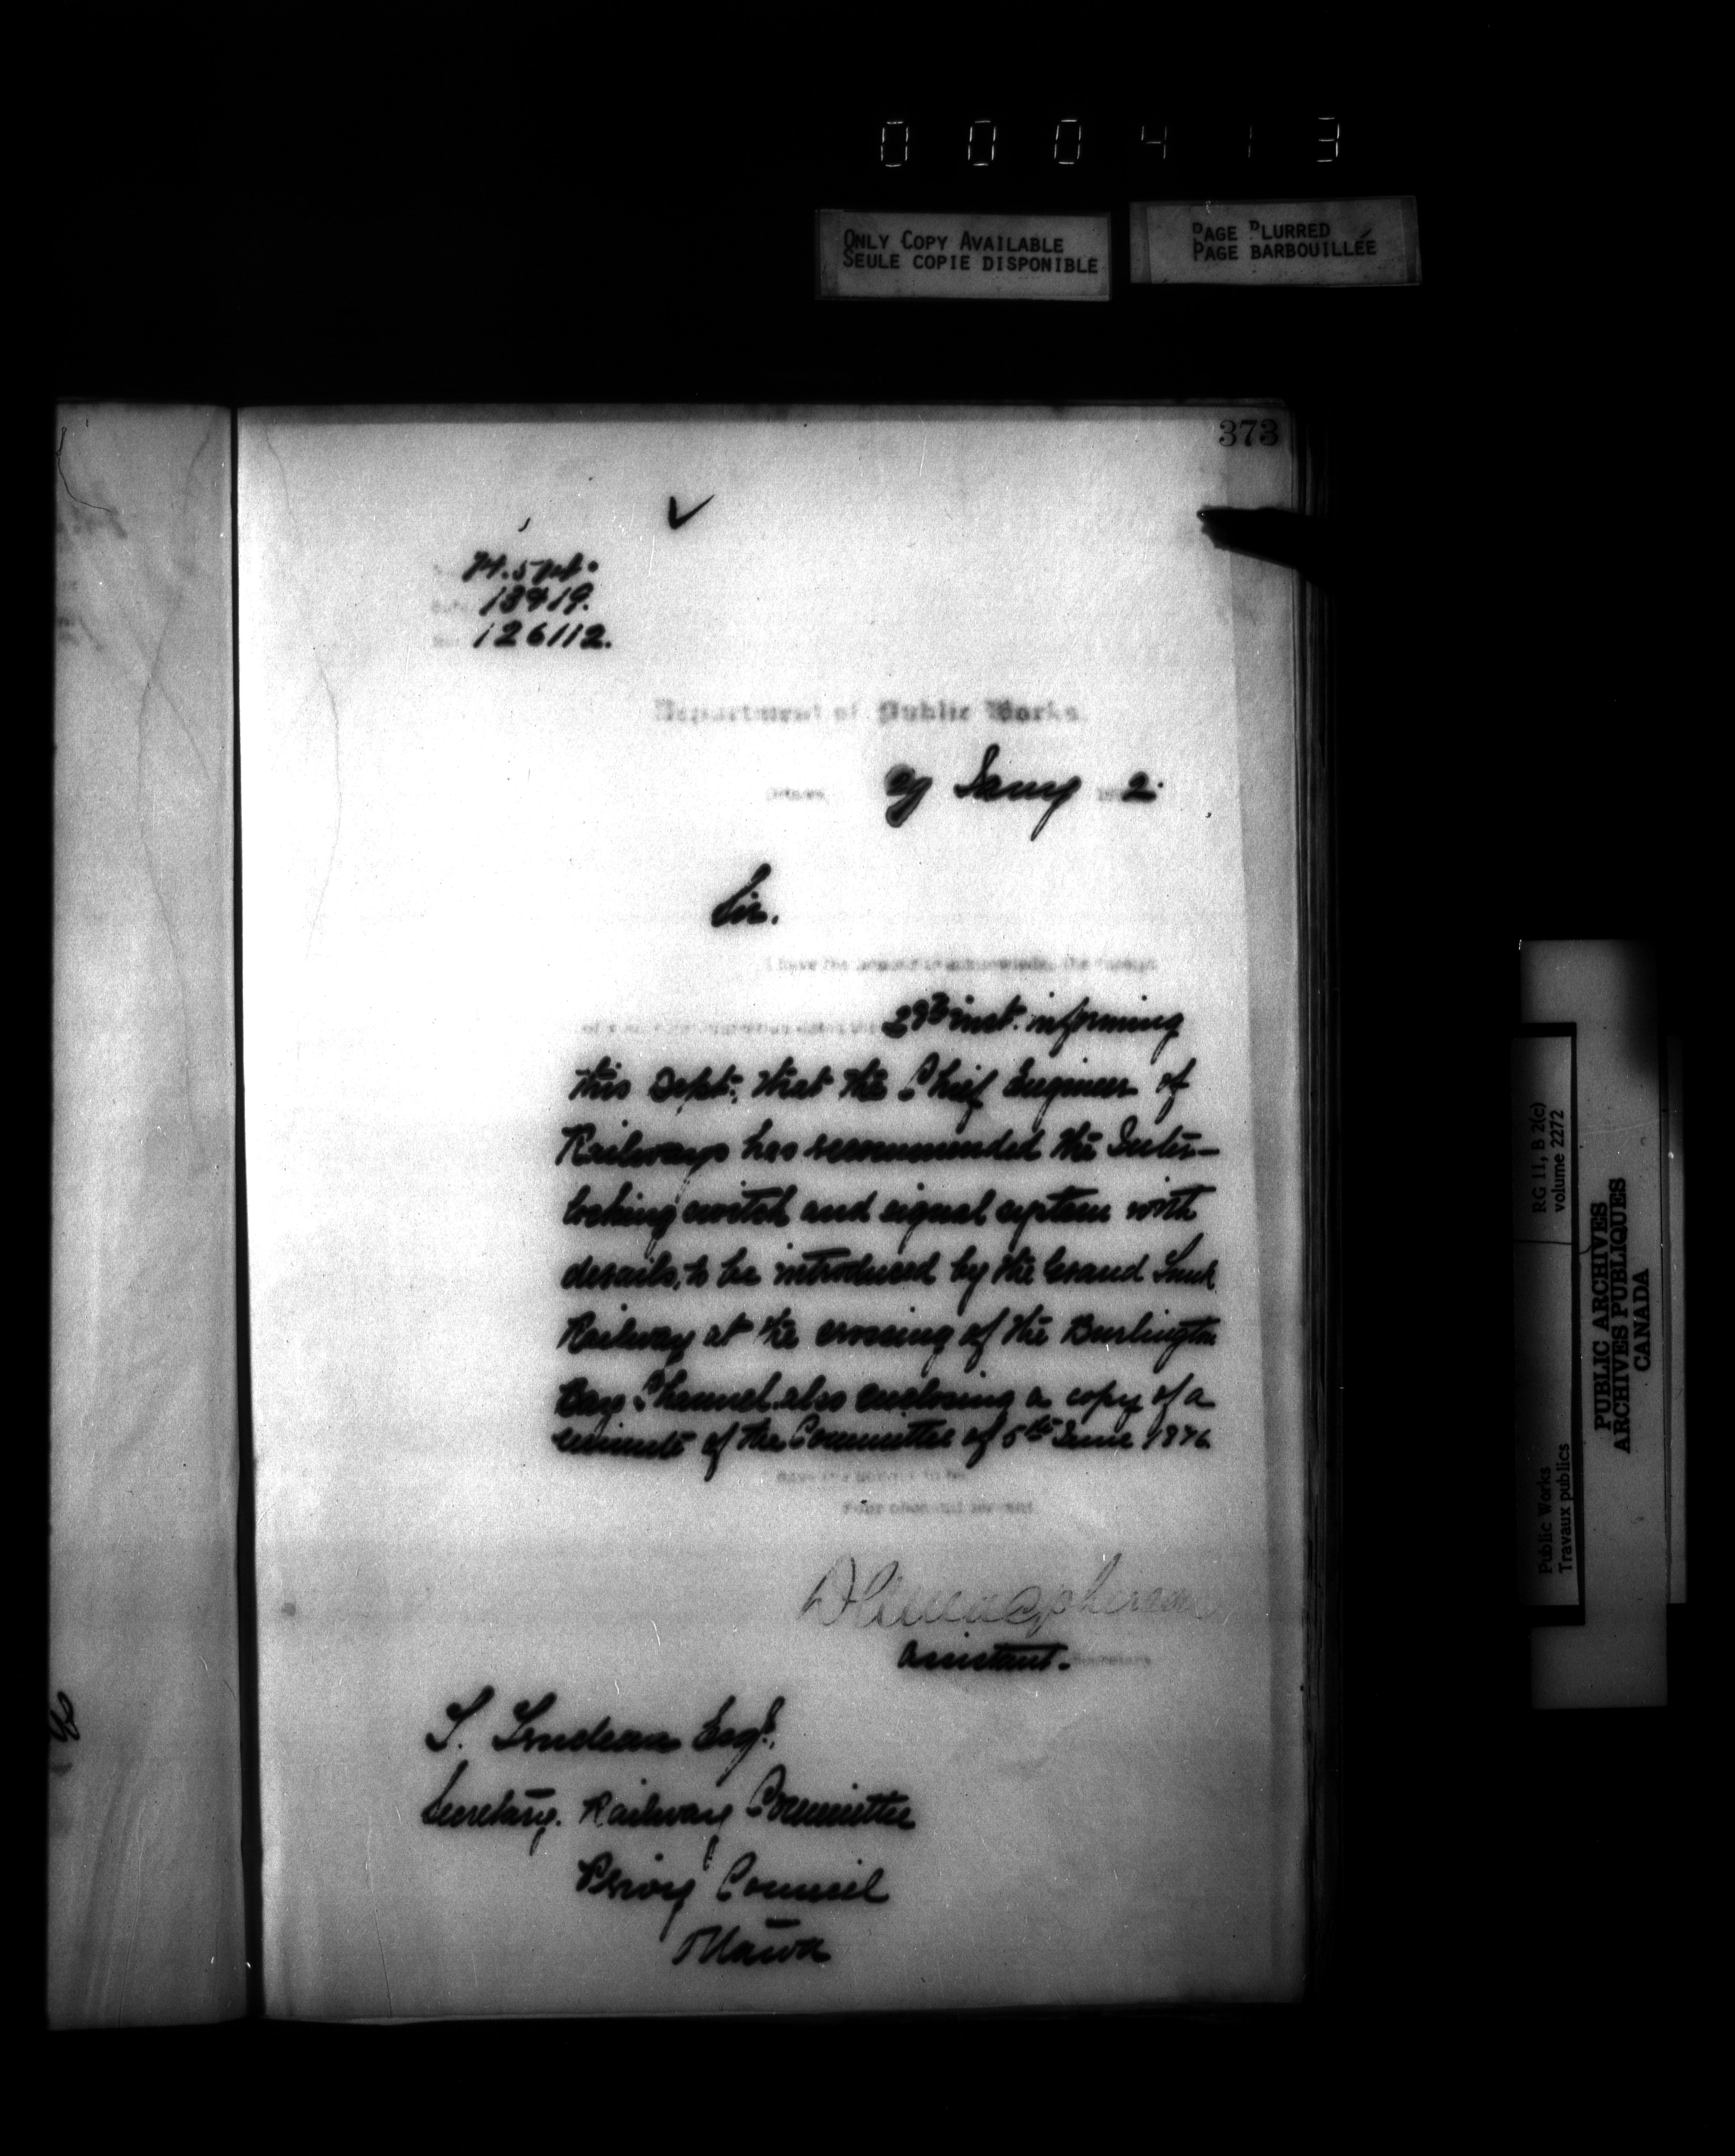 000413
ONLY COPY AVAILABLE
SEULE COPIE DISPONIBLE
PAGE BLURRED
PAGE BARBOUILLÉE
373
126112.
Department of Public Works.
Ottawa, 29 Jany 2.
Sir.
I have the honour to acknowledge the receipt
inst. informing
this Dept. that the Chief Engineer of
Railways has recommended the Inter-
locking switch and signal system with
details, to be introduced by the Grand Trunk
Railway at the crossing of the Burlington
Bay Channel also enclosing a copy of a
minute of the Committee of 5th June 1876
have the honor to be
Your obedient servant
Assistant Secretary
Trudeau Esqr.
Secretary. Railway Committee
Privy Council
Ottawa
RG 11, B 2(c)
volume 2272
Public Works
Travaux publics
PUBLIC ARCHIVES
ARCHIVES PUBLIQUES
CANADA